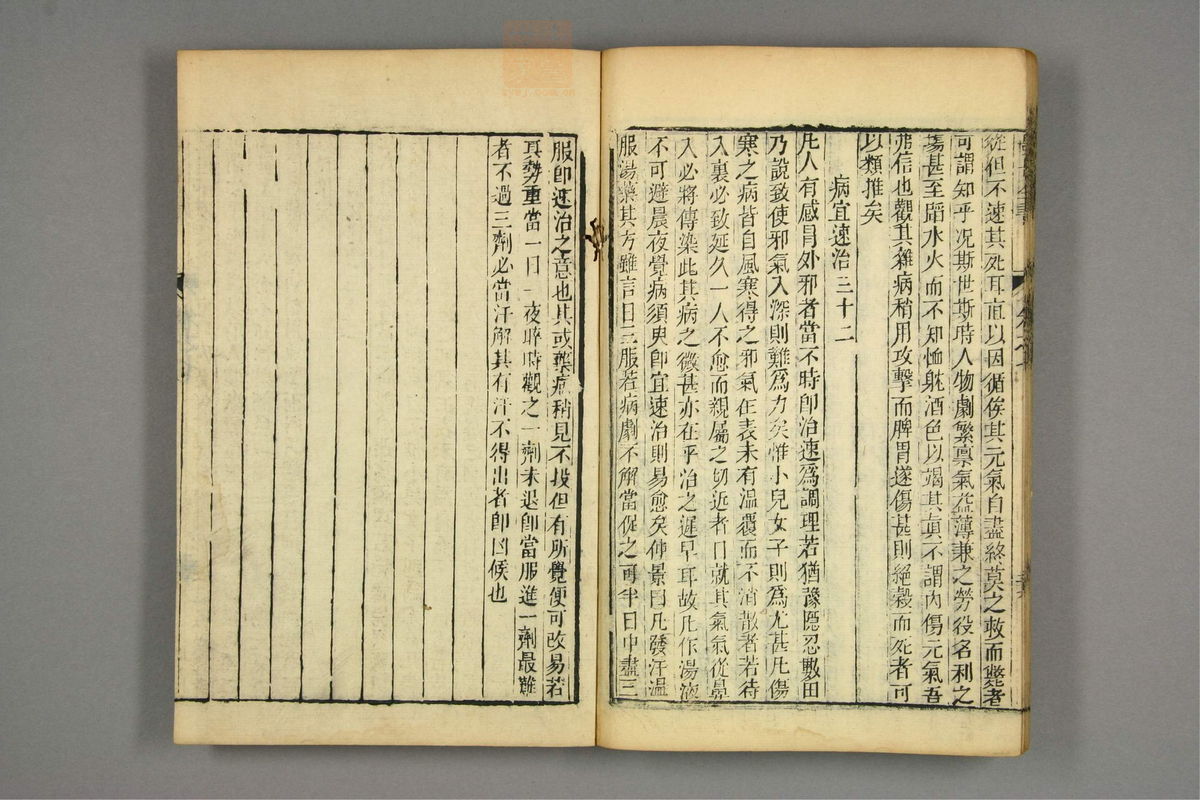 從但不速其死耳直以因循俟其元氣自盡終莫之救而斃者
可謂知乎况斯世斯時人物劇繁禀氣益薄兼之勞役名利之
塲甚至蹈水火而不知恤躭酒色以竭其真不謂内傷元氣吾
弗信也觀其雜病稍用攻擊而脾胃遂傷甚則絕穀而死者可
以類推矣
病宜速治三十二
凡人有感冒外邪者當不時即治速為調理若猶豫隱忍數日
乃說致使邪氣入深則難為力矣惟小兒女子則為尤甚凡傷
寒之病皆自風寒得之邪氣在表未有温覆而不消散者若待
入裏必致延久一人不愈而親屬之切近者日就其氣氣從鼻
入必將傳染此其病之微甚亦在乎治之遲早耳故凡作湯液
不可避晨夜覺病須臾即宜速治則易愈矣仲景曰凡發汗温
服湯藥其方雖言日三服若病劇不解當促之可半日中盡三
服即速治之意也其或藥病稍見不投但有所覺便可改易若
其勢重當一日一夜晬時觀之一劑未退即當服進一劑最難
者不過三劑必當汗解其有汗不得出者即凶候也